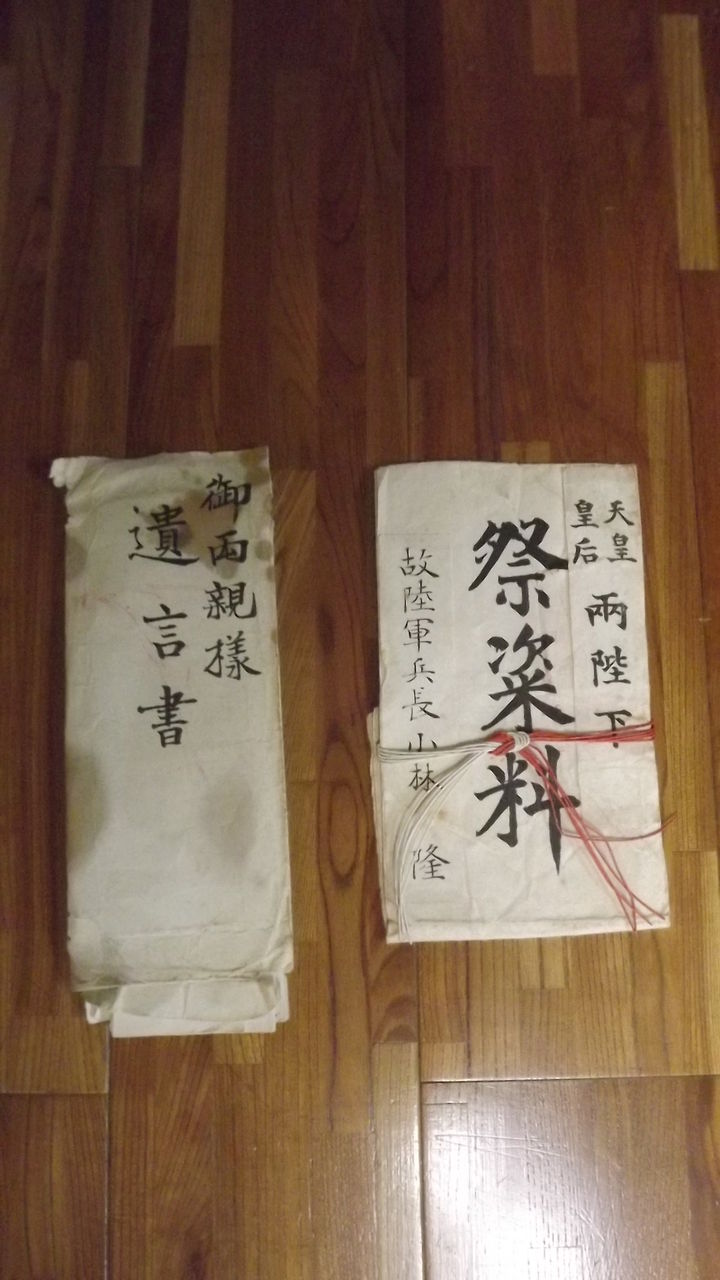 御両親様
遺言書
天皇
皇后
兩陛下
祭粢料
故陸軍兵長小林 隆